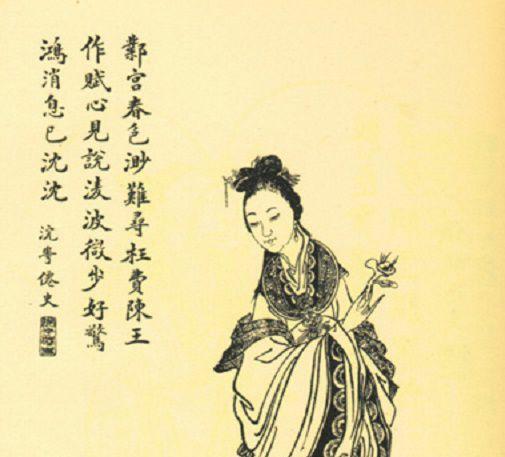 鄴宮春色渺難尋枉費陳王
作賦心見說淩波微步好驚
鴻消息已沈沈
倦史